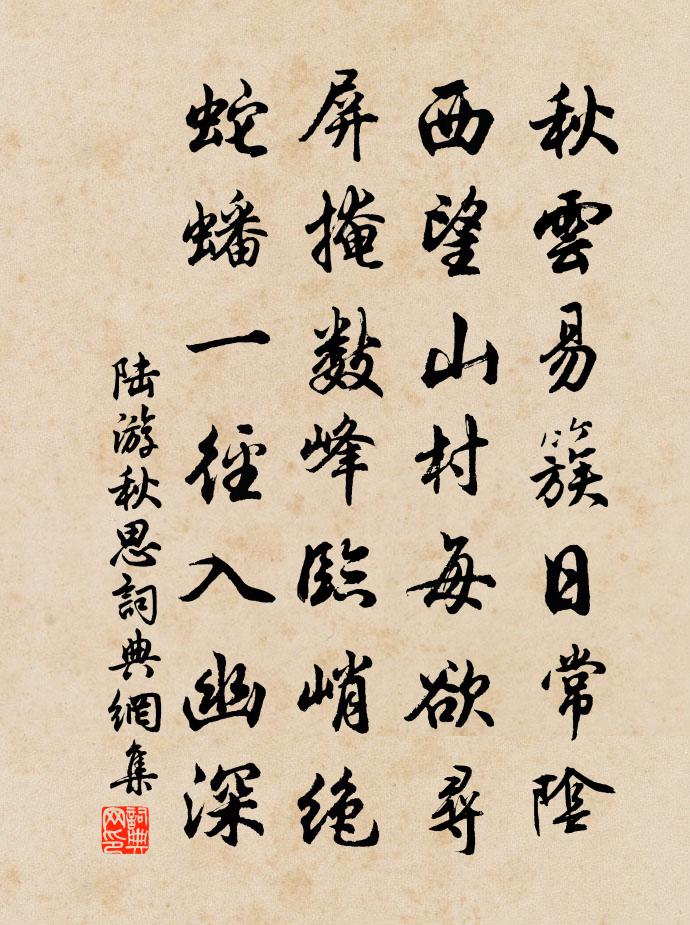 秋雲易簇日常陰
西望山村每欲尋
屏掩數峰臨峭絶
蛇蟠一徑入幽深
陆游秋思詞典網集
詞典网印